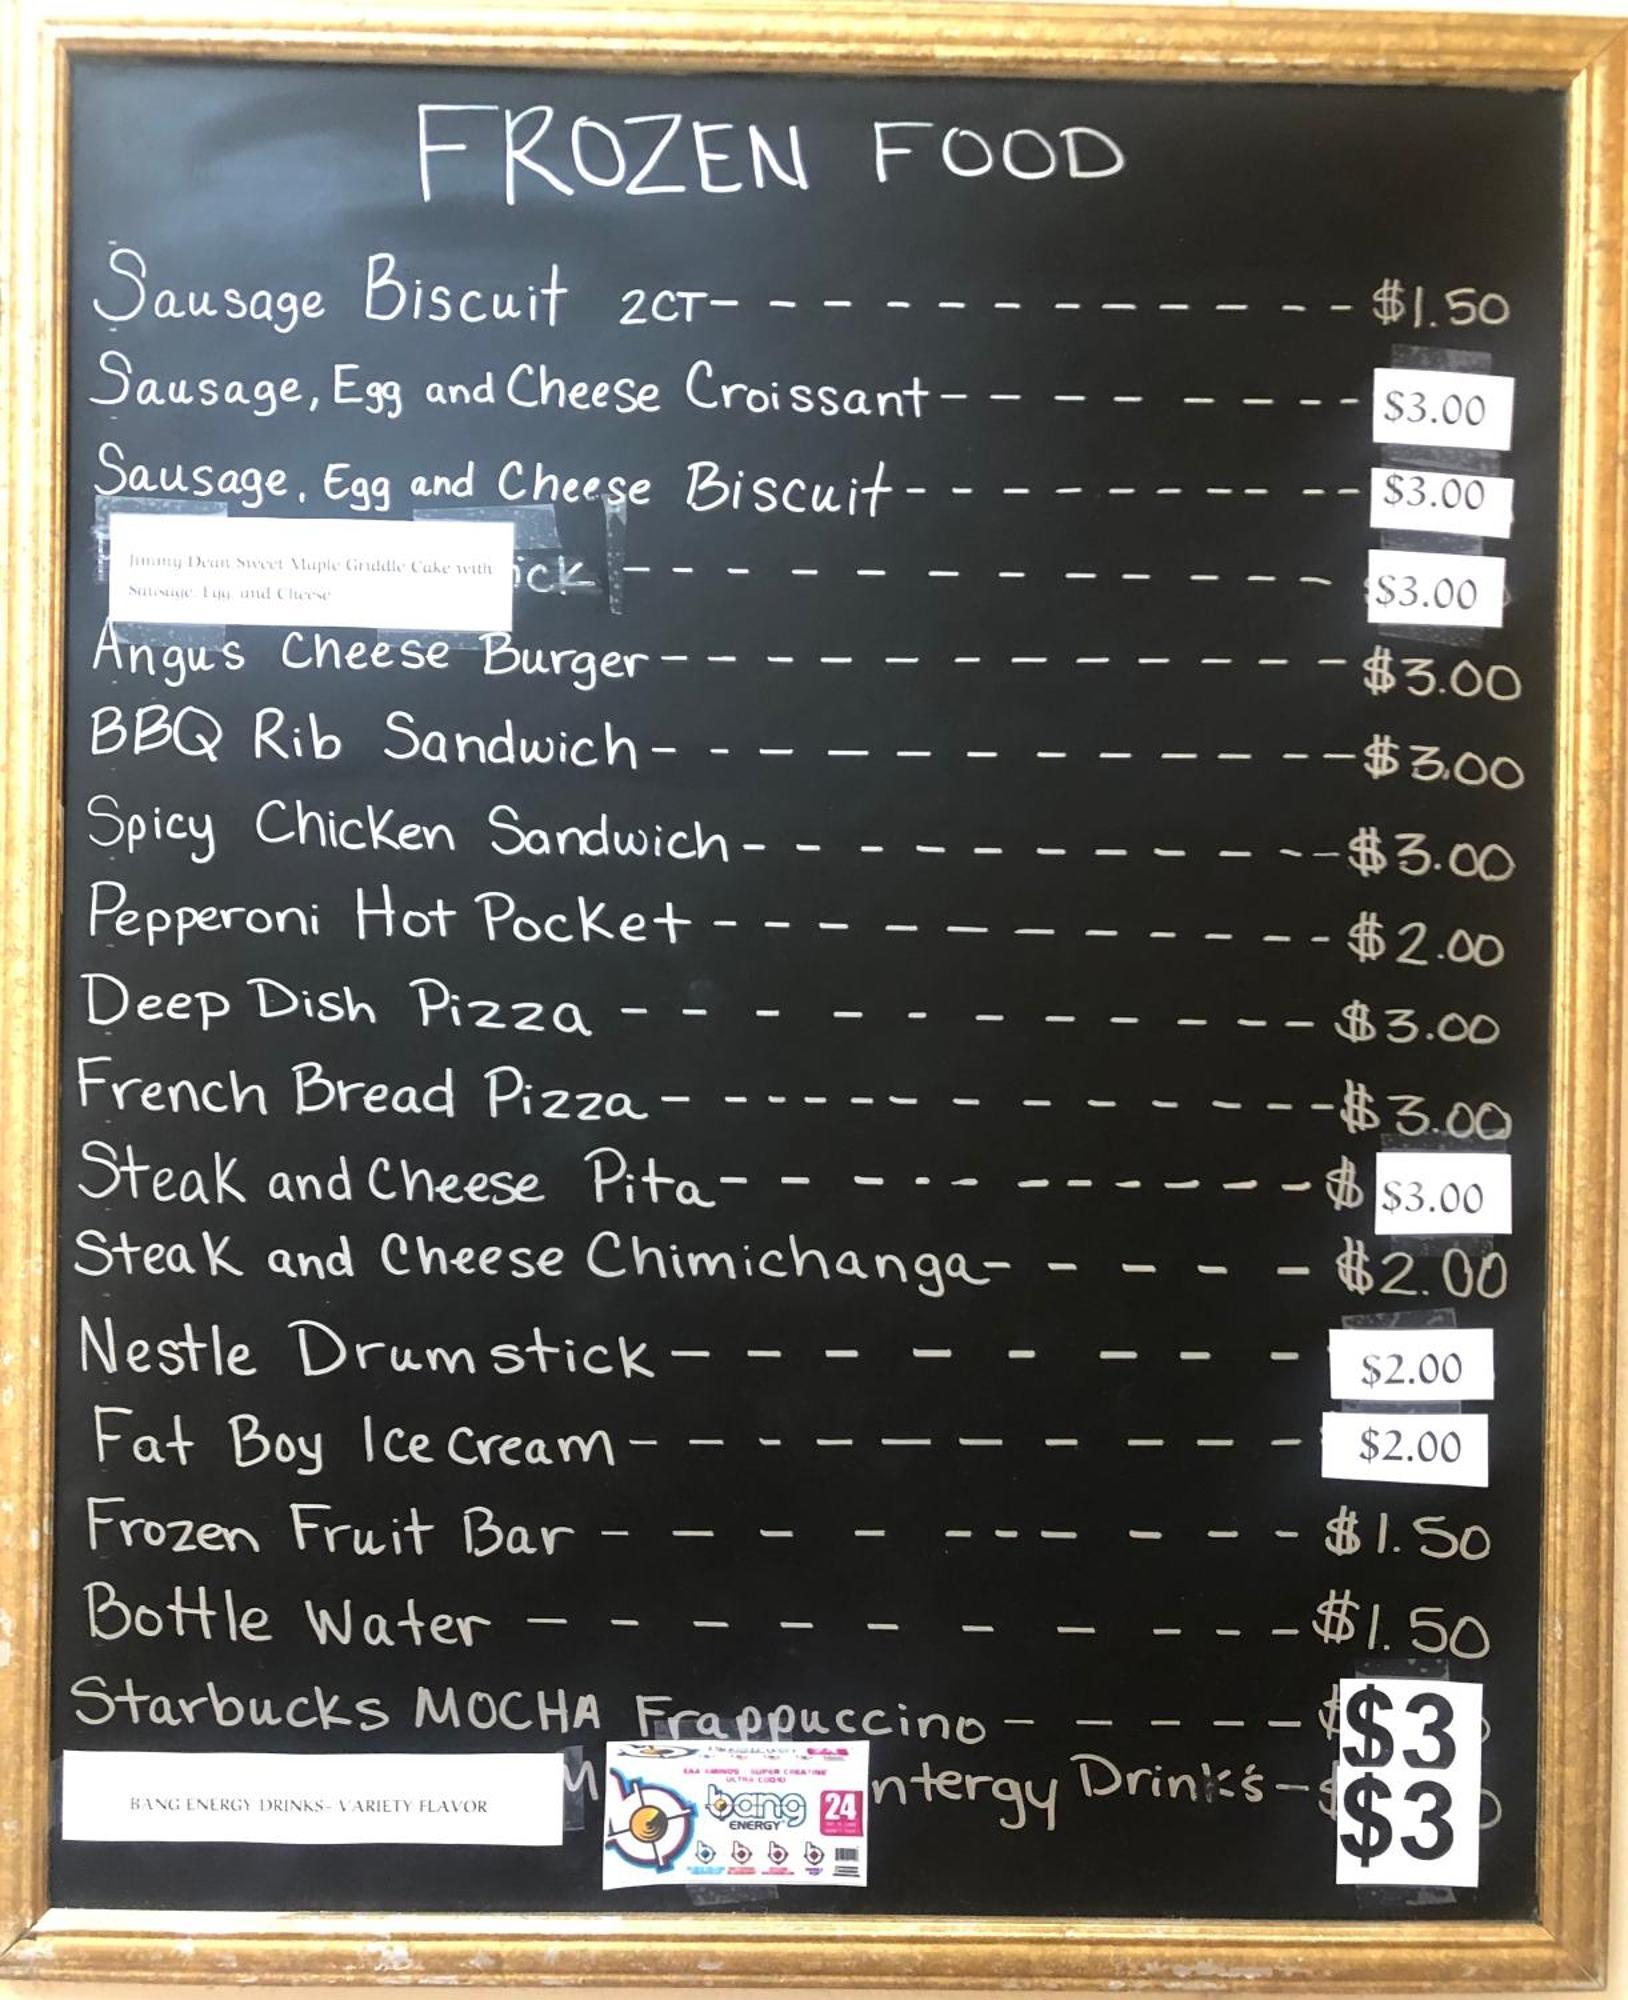 FROZEN FOOD
Sausage Biscuit 2CT- - - - - - - - - - - - - $1.50
Sausage, Egg and Cheese Croissant- - - - - - - - - $3.00
Sausage, Egg and Cheese Biscuit- - - - - - - - - - $3.00
Jimmy Dean Sweet Maple Griddle Cake with
Sausage, Egg, and Cheese
ick - - - - - - - - - - - - $3.00
Angus Cheese Burger- - - - - - - - - - - - $3.00
BBQ Rib Sandwich- - - - - - - - - - - - $3.00
Spicy Chicken Sandwich- - - - - - - - - - - $3.00
Pepperoni Hot Pocket - - - - - - - - - - - $2.00
Deep Dish Pizza - - - - - - - - - - - $3.00
French Bread Pizza- - - - - - - - - - - - - $3.00
Steak and Cheese Pita- - - - - - - - - - - $ $3.00
Steak and Cheese Chimichanga- - - - - $2.00
Nestle Drumstick - - - - - - - - $2.00
Fat Boy Ice Cream - - - - - - - - - - $2.00
Frozen Fruit Bar - - - - - - - - - - $1.50
Bottle Water - - - - - - - - - - $1.50
Starbucks MOCHA Frappuccino - - - - - $3
BANG ENERGY DRINKS- VARIETY FLAVOR
EAA AMINOS SUPER CREATINE
ULTRA COQ10
bang
ENERGY
24
ntergy Drinks- $3